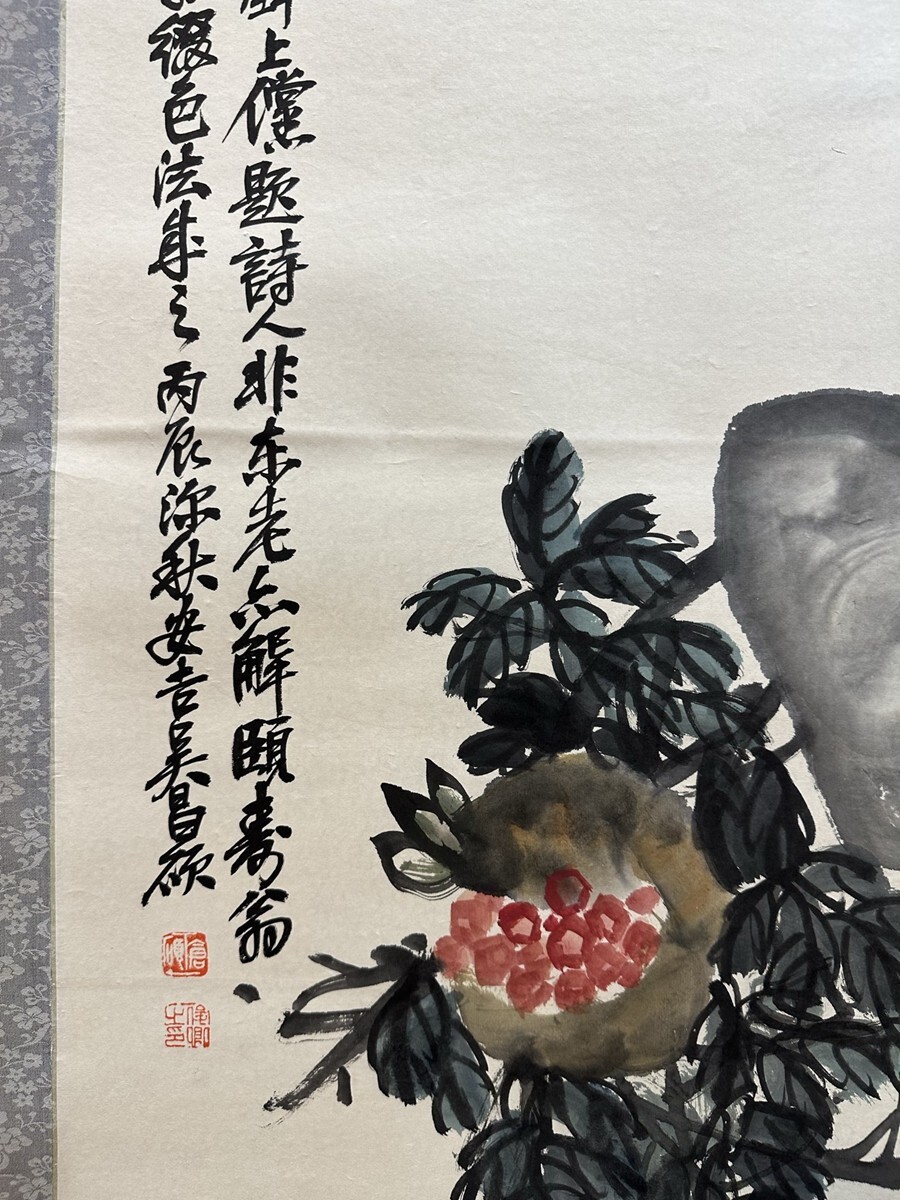 上儻題詩人非東老亦解頤壽翁
綴色法成之丙辰深秋安吉吳昌碩
倉碩
俊卿之印